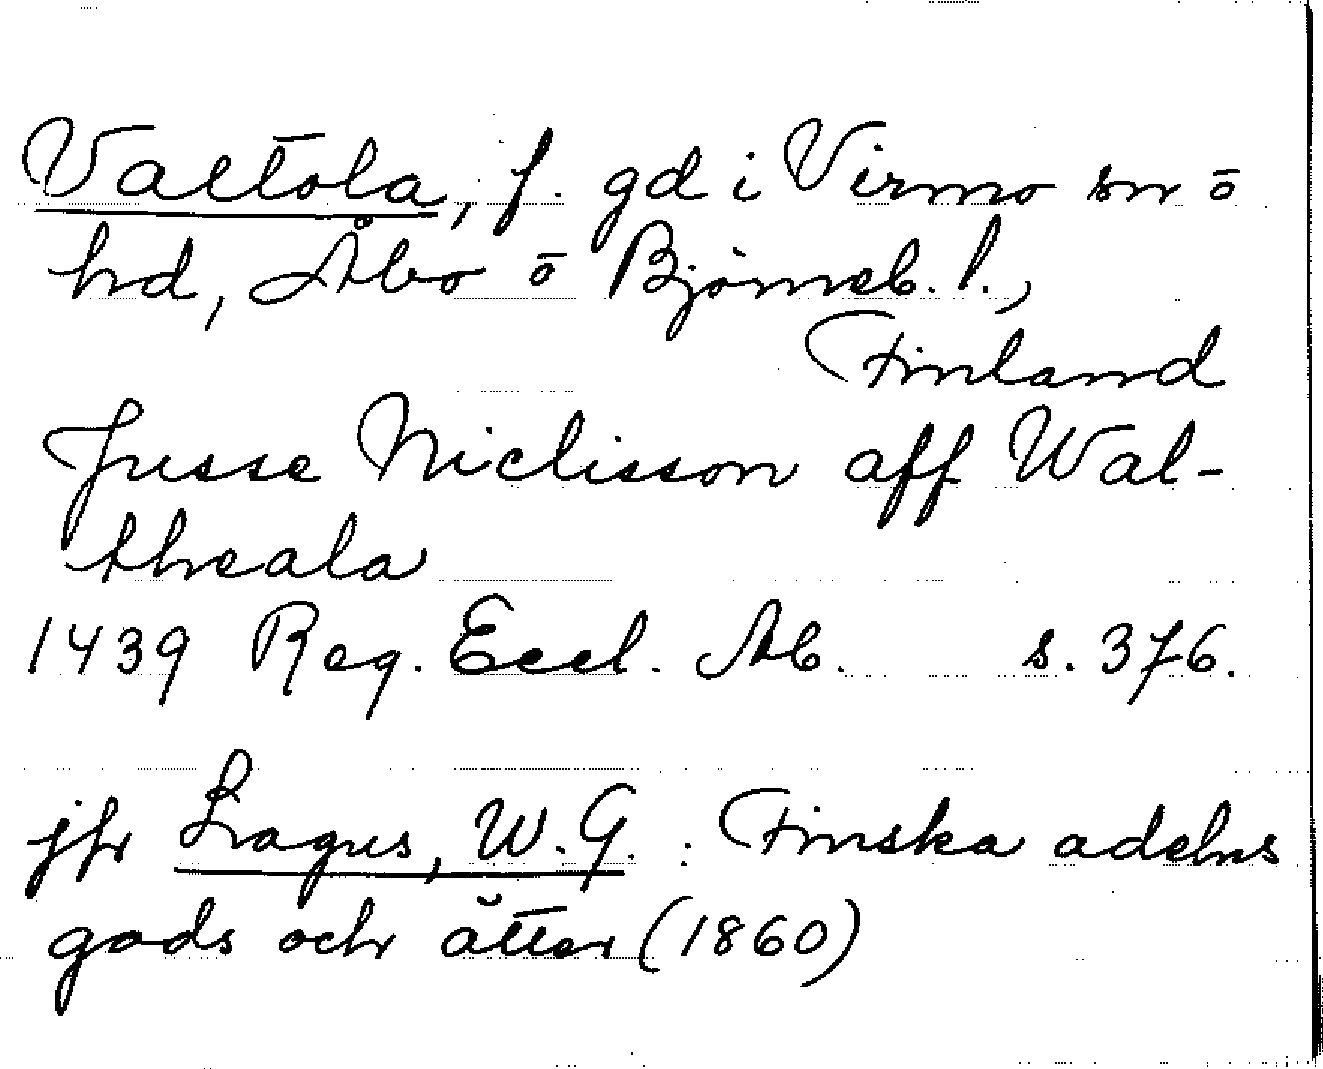 Valtola, f. gd i Virmo sn o
hd, Åbo o Björneb. l.,
Finland
Jusse Niclisson aff Wal-
theala
1439 Reg. Eccl. Ab. s. 376.
jfr Lagus, W.G. : Finska adelns
gods och ätter (1860)